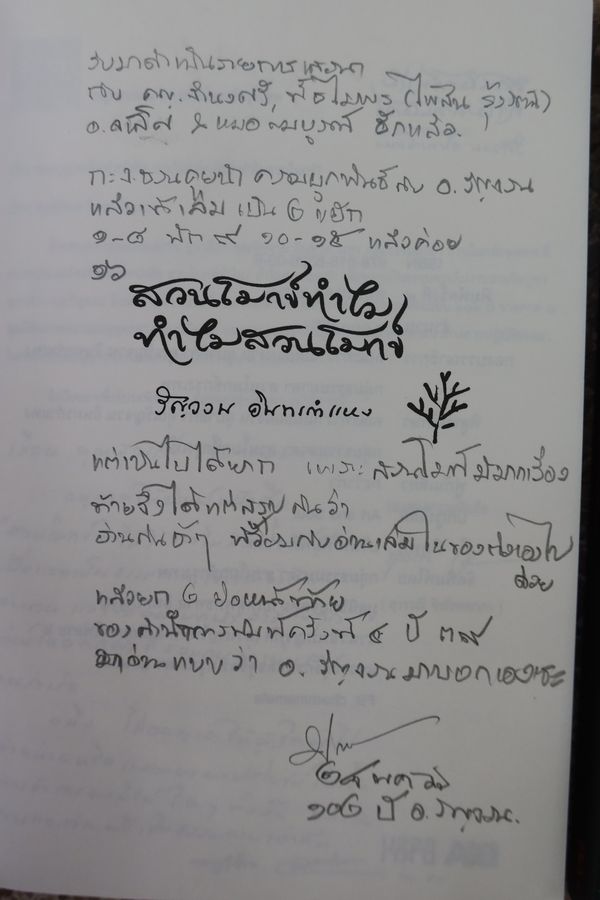 รับมาดำเนินรายการเสวนา
กับ คญ. จำนงศรี, พี่ไพบูลย์
อ. & หมอ สมบูรณ์ อีกหลัง
กะจะชวนคุยนำ ความผูกพันธ์กับ อ. รัญจวน
แล้วนำเล่ม เป็น ๒ แฮ้ก
๑-๘ พัก ๙ ๑๐-๑๕ แล้วค่อย
๑๖
สวนโมกข์ทำไม
ทำไมสวนโมกข์
รัญจวน อินทรกำแหง
แต่เป็นไปได้ยาก เพราะสวนโมกข์มีมากเรื่อง
ท้ายจึงได้แต่สรุปกันว่า
อ่านกันช้าๆ พร้อมกับอ่านเล่มในของตัวเองไป
ด้วย
แล้วยก ๒ ย่อหน้าท้าย
ของคำนำการพิมพ์ครั้งที่ ๔ ปี ๓๙
มาอ่านแบบว่า อ. รัญจวน มาบอกเองซะ
๒๘
๑๐๒ ปี อ. รัญจวน.